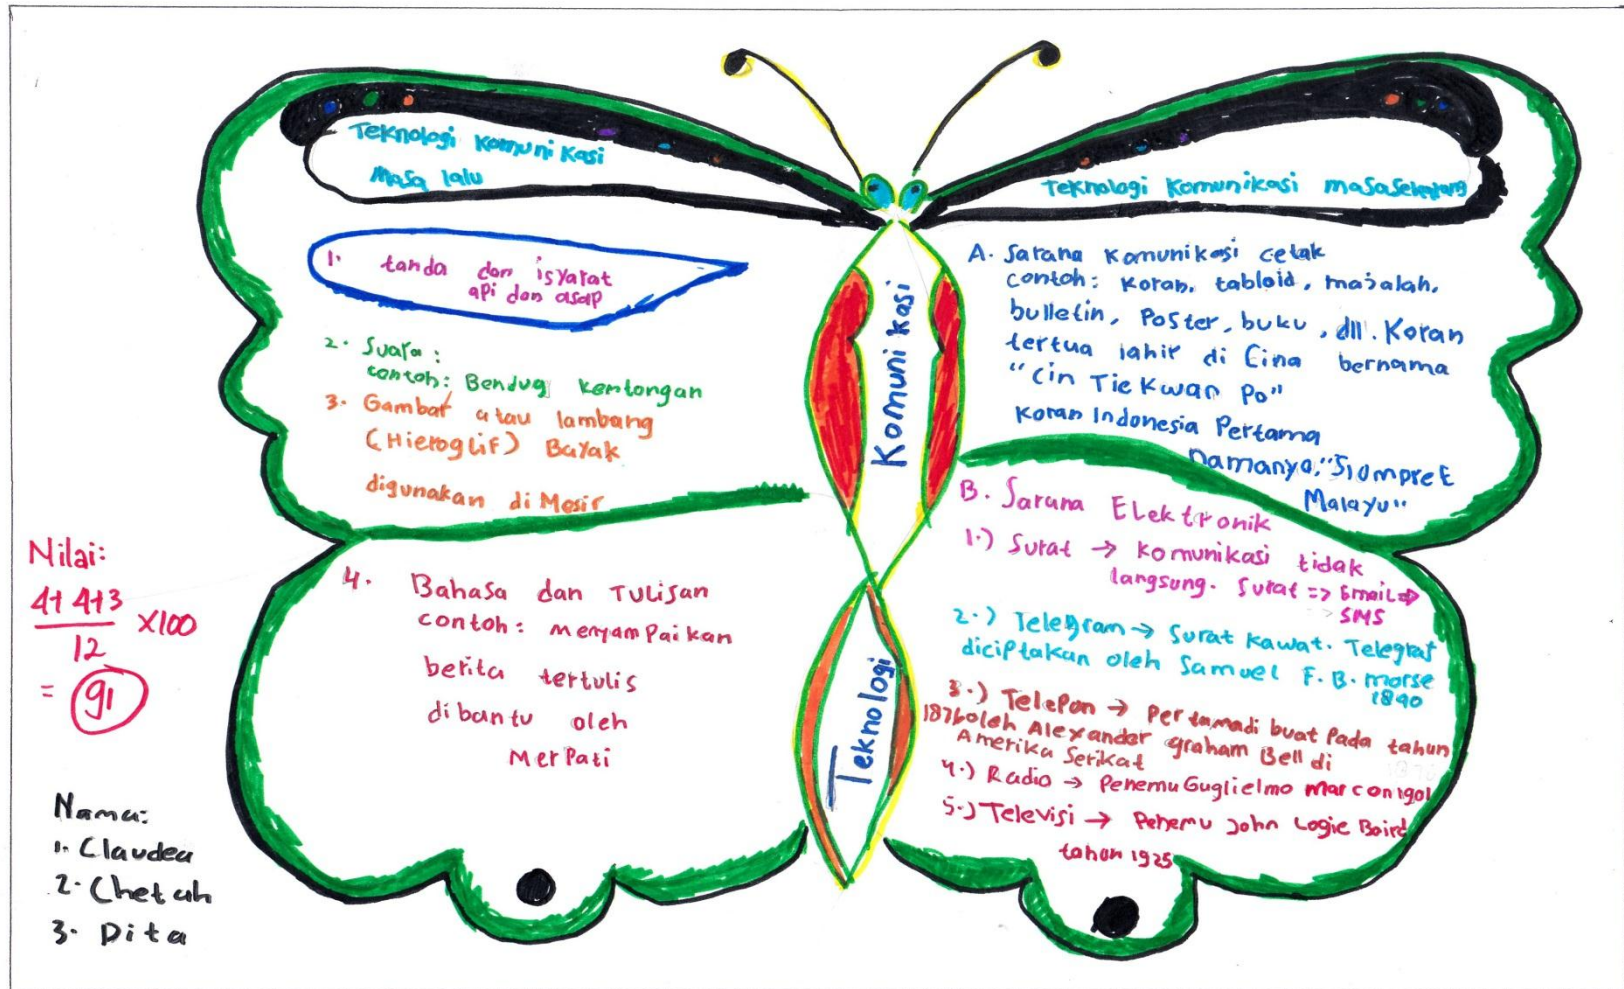 Teknologi Komunikasi
Masa lalu
1. tanda dan isyarat
api dan asap
2. Suara:
contoh: Bendug kentongan
3. Gambar atau lambang
(Hieroglif) Bayak
digunakan di Mesir
4. Bahasa dan Tulisan
contoh: menyampaikan
berita tertulis
dibantu oleh
Merpati
Komunikasi
Teknologi
Teknologi Komunikasi masa Sekarang
A. Sarana Komunikasi cetak
contoh: Koran, tabloid, majalah,
bulletin, Poster, buku, dll. Koran
tertua lahir di Cina bernama
"Cin Tie Kwan Po"
Koran Indonesia Pertama
namanya "Slompret
Malayu"
B. Sarana Elektronik
1.) Surat → Komunikasi tidak
langsung. Surat => Email =>
SMS
2.) Telegram → Surat Kawat. Telegraf
diciptakan oleh Samuel F. B. morse
1840
3.) Telepon → Pertama di buat Pada tahun
1876 oleh Alexander graham Bell di
Amerika Serikat
4.) Radio → Penemu Guglielmo Marconi 1901
5.) Televisi → Penemu John Logie Baird
tahun 1925
Nilai:
4+4+3
12
×100
= 91
Nama:
1. Claudea
2. Chetah
3. Dita